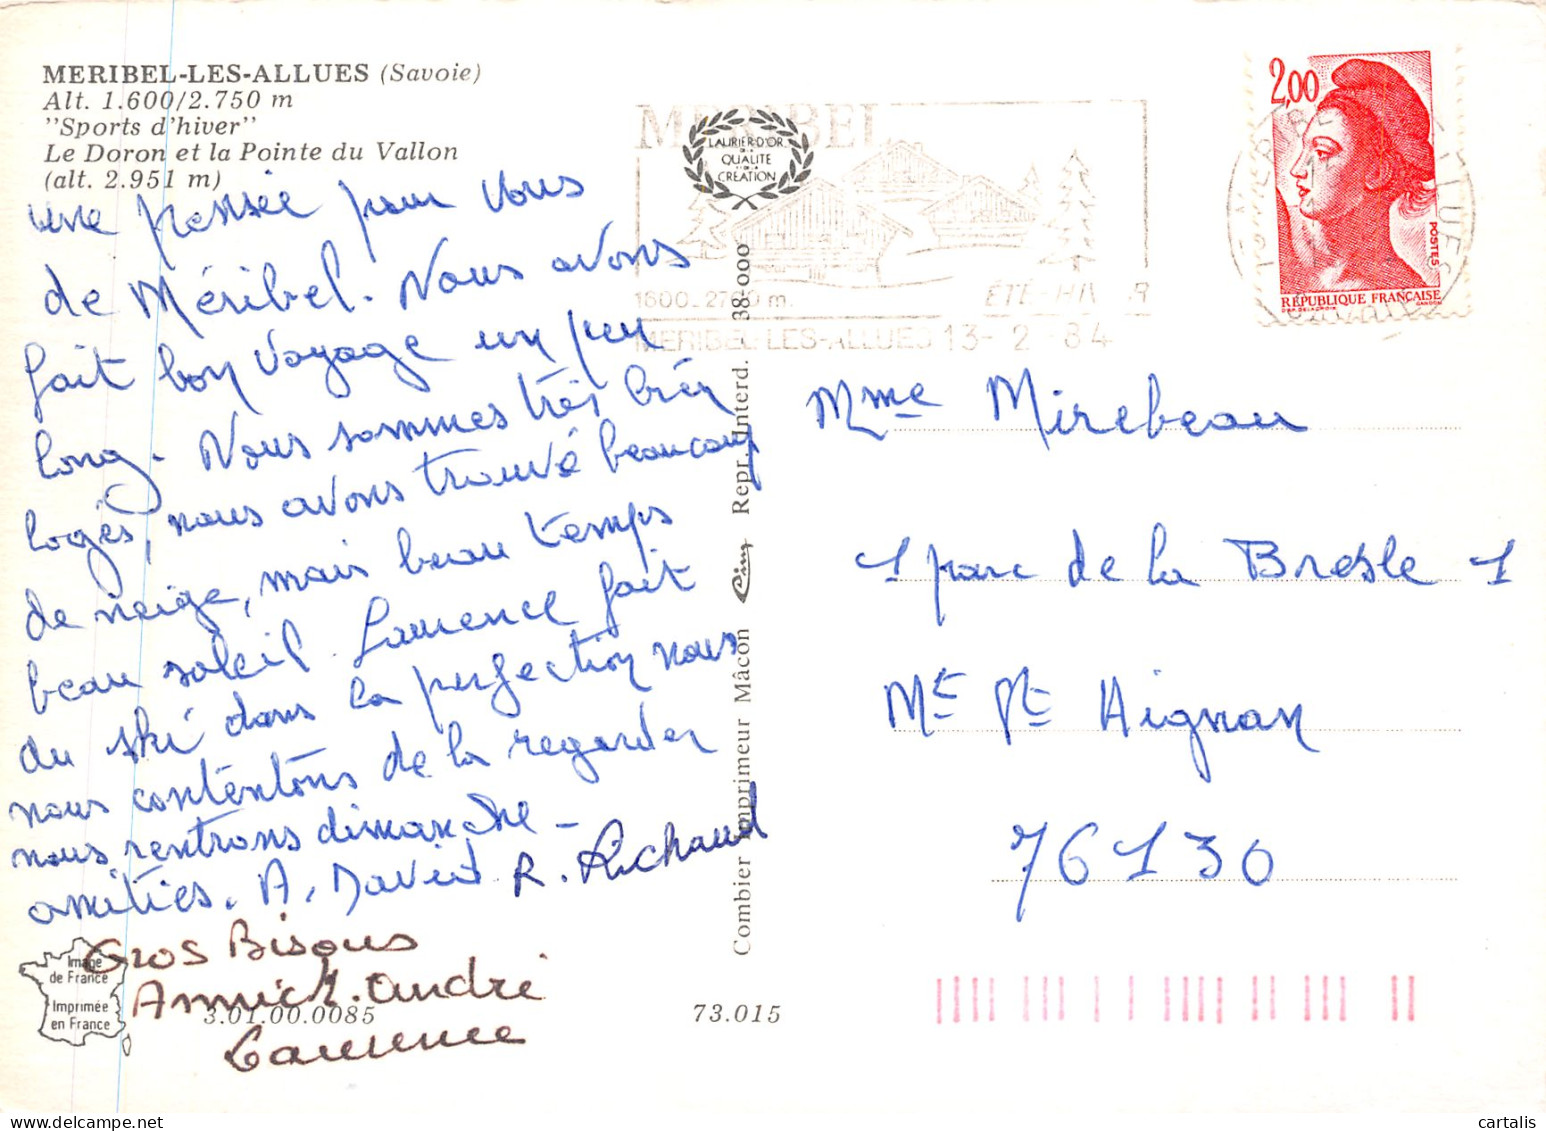 MERIBEL-LES-ALLUES (Savoie)
Alt. 1.600/2.750 m
"Sports d'hiver"
Le Doron et la Pointe du Vallon
(alt. 2.951 m)
une pensée pour vous
de Méribel. Nous avons
fait bon voyage un peu
long. Nous sommes très bien
logés, nous avons trouvé beaucoup
de neige, mais beau temps
beau soleil. Laurence fait
du ski dans la perfection nous
nous contentons de la regarder
nous rentrons dimanche -
amitiés. A. David R. Richaud
Gros Bisous
Annick. André
Laurence
Image
de France
Imprimée
en France
3.01.00.0085
73.015
Combier Imprimeur Mâcon Cim Repr. Interd. 38-000
LAURIER D'OR
DE LA
QUALITE
CREATION
MERIBEL
1600-2700 m.
ÉTÉ-HIVER
MERIBEL-LES-ALLUES 13-2-84
2,00
POSTES
RÉPUBLIQUE FRANÇAISE
D'AP. DELACROIX
GANDON
Mme Mirebeau
1 parc de la Bresle 1
Mt St Aignan
76130
-- cartalis --